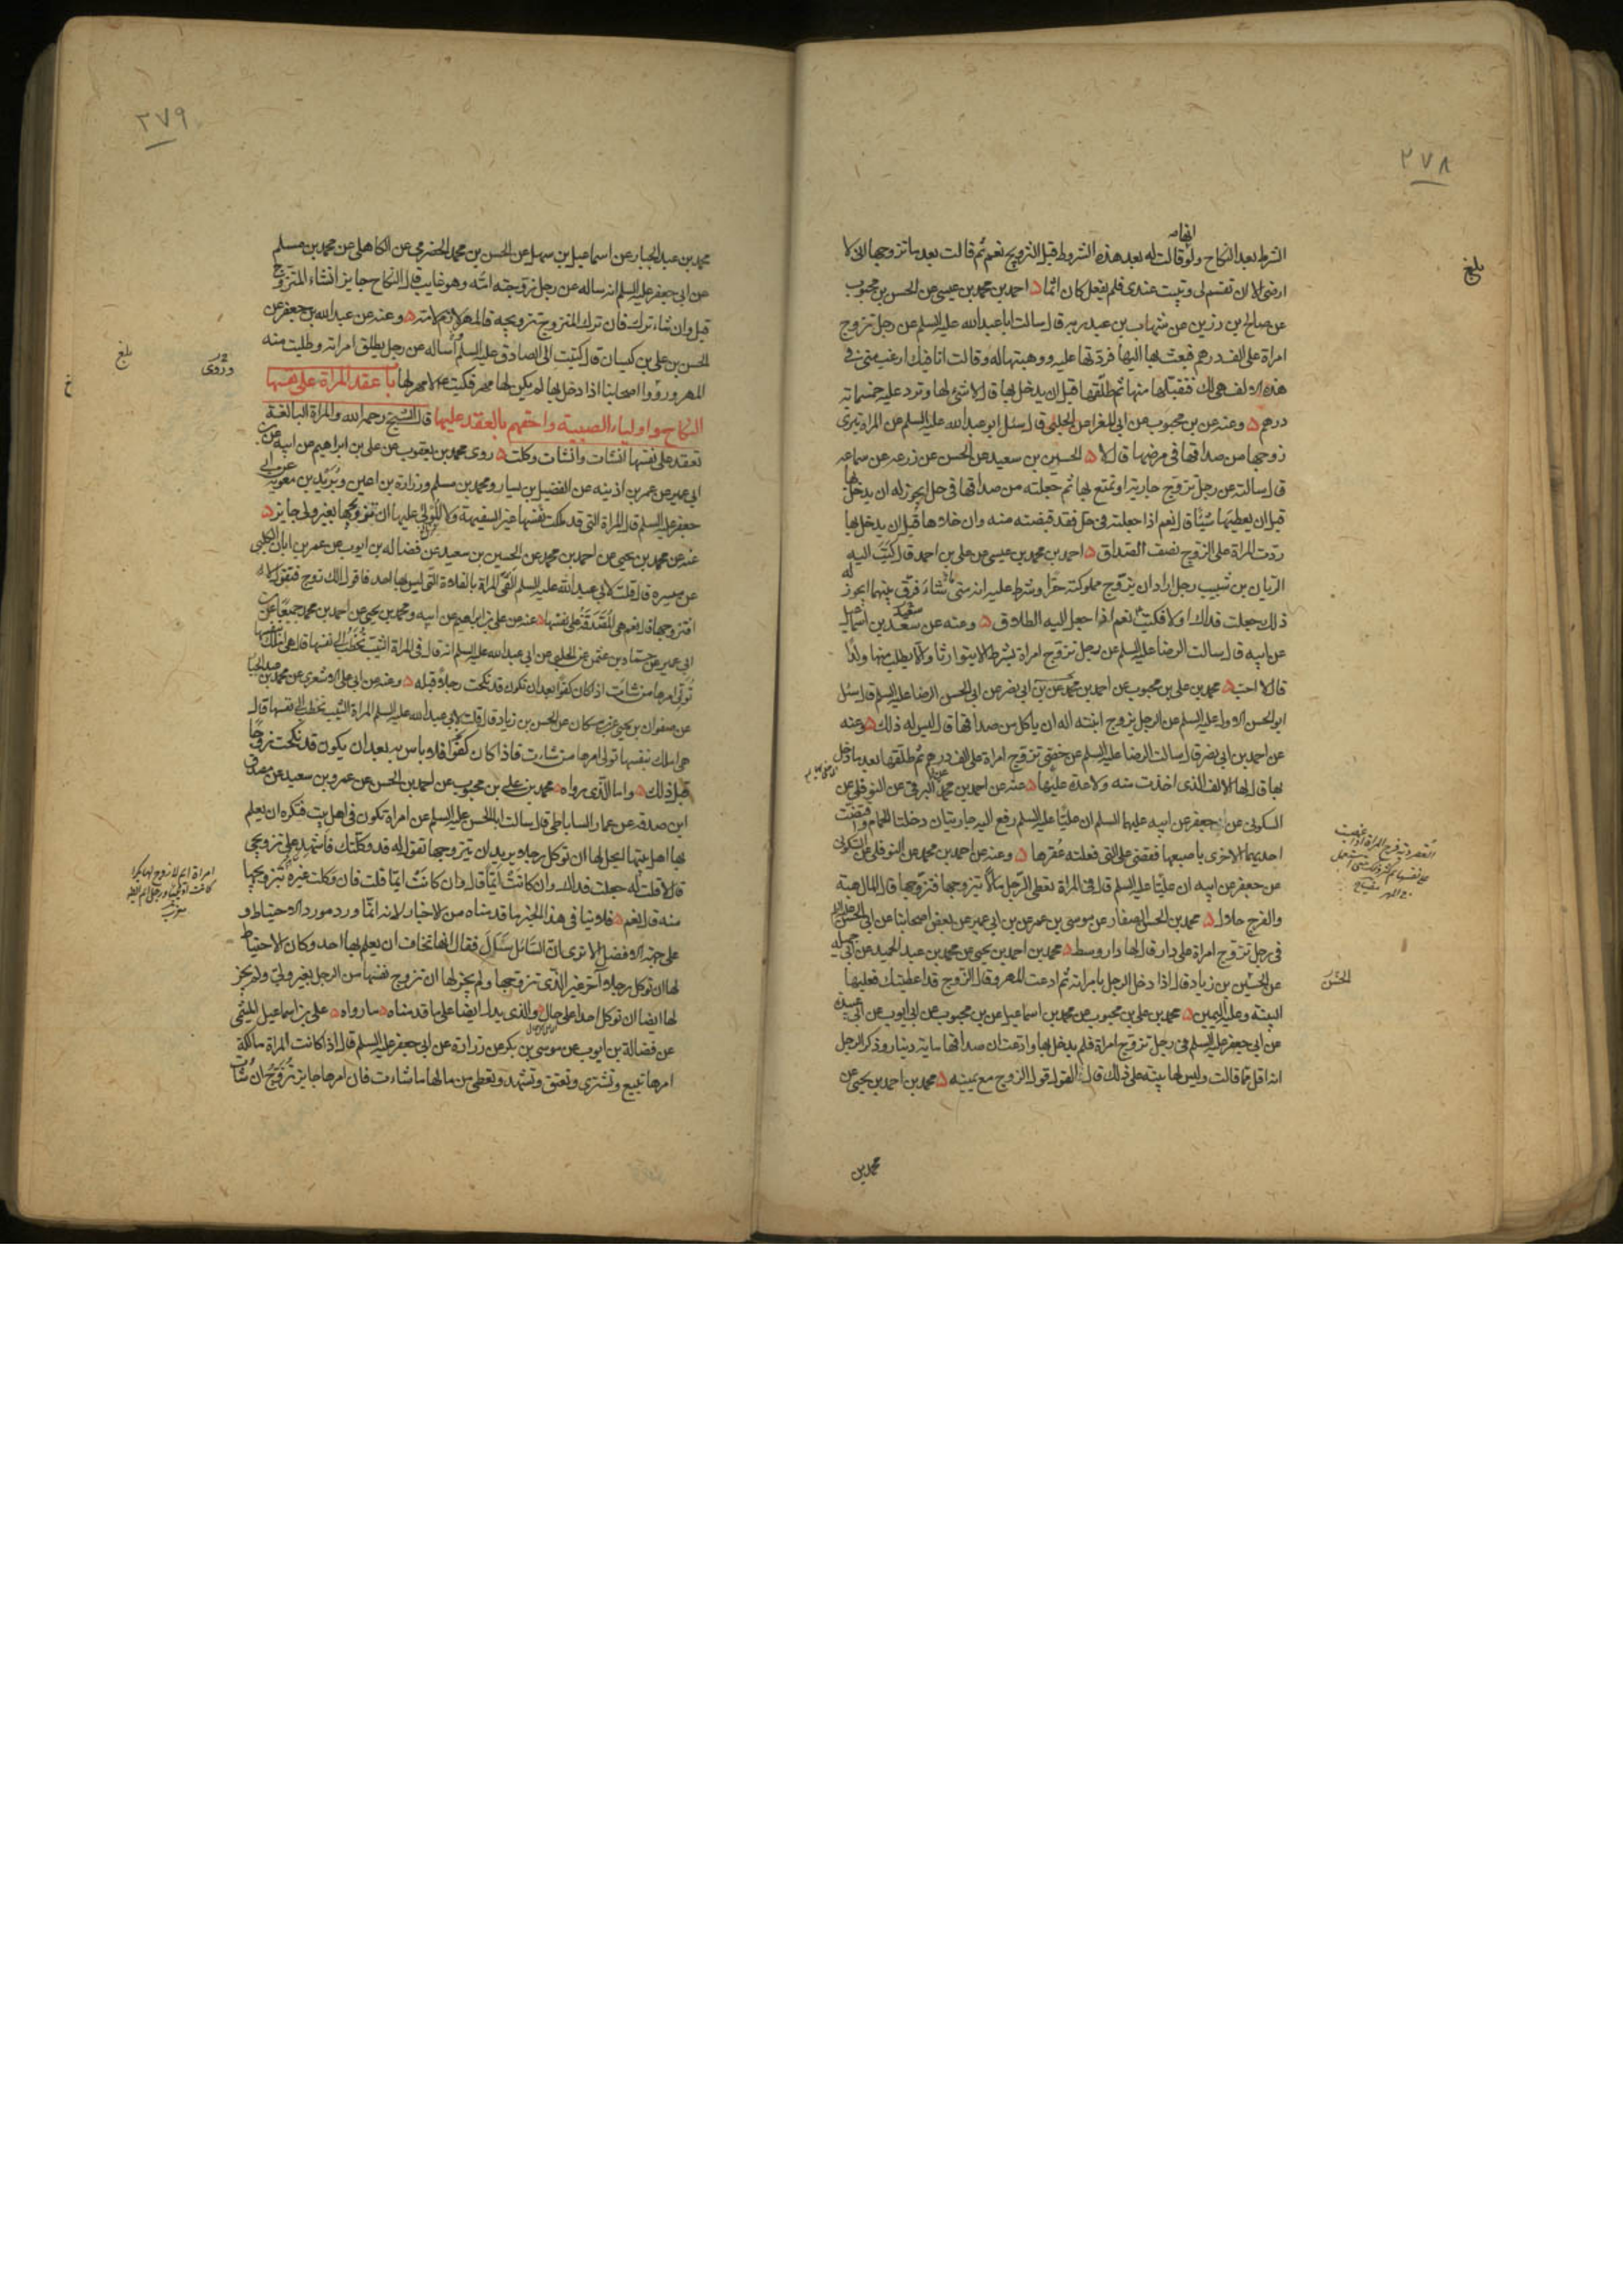 ٢٧٨
انها
الشرط بعد النكاح ولو قالت له بعد هذه الشروط قبل التزويج نعم ثم قالت بعد ما تزوجها انى لا
بلغ
ارضى الا ان تقسم لى وتبيت عندى فلم يفعل كان اثما احمد بن محمد بن عيسى عن الحسن بن محبوب
عن صالح بن رزين عن شهاب بن عبد ربه قال سالت ابا عبد الله عليه السلم عن رجل تزوج
امراة على الف درهم فبعث بها اليها فردتها عليه ووهبتها له وقالت انا فيك ارغب منى فى
هذه الالف هى لك فتقبلها منها ثم طلقها قبل ان يدخل بها قال لا شئ لها وترد عليه خمسماية
درهم وعنه عن بن محبوب عن ابى المغرا عن الحلبى قال سئل ابو عبد الله عليه السلم عن المراة تبرى
زوجها من صداقها فى مرضها قال لا الحسين بن سعيد عن الحسن عن زرعه عن سماعه
قال سالته عن رجل تزوج جارية او تمتع بها ثم جعلته من صداقها فى حل ايجوز له ان يدخل بها
قبل ان يعطيها شيئا قال نعم اذا جعلته فى حل فقد قبضته منه وان خلاها قبل ان يدخل بها
ردت المراة على الزوج نصف الصداق احمد بن محمد بن عيسى عن على بن احمد قال كتب اليه
الريان بن شبيب رجل اراد ان يزوج مملوكته حرا وشرط عليه انه متى شاء فرق بينهما ايجوز له
ذلك جعلت فداك او لا فكتب نعم اذا جعل اليه الطلاق وعنه عن سعد بن اسماعيل
سعيد
عن ابيه قال سالت الرضا عليه السلم عن رجل تزوج امراة بشرط الا يتوارثا والا يطلب منها ولدا
قال لا احب محمد بن على بن محبوب عن احمد بن محمد عن بن ابى نصر عن ابى الحسن الرضا عليه السلم قال سئل
ابو الحسن الاول عليه السلم عن الرجل يزوج ابنته اله ان ياكل من صداقها قال ليس له ذلك وعنه
عن احمد بن ابى نصر قال سالت الرضا عليه السلم عن خصى تزوج امراة على الف درهم ثم طلقها بعد ما دخل
بها قال لها الالف الذى اخذت منه ولا عدة عليها عنه عن احمد بن محمد البرقى عن النوفلى عن
السكونى عن جعفر عن ابيه عليهما السلم ان عليا عليه السلم رفع اليه جاريتان دخلتا الحمام وافتضت
احديهما الاخرى باصبعها فقضى على التى فعلته عقرها وعنه عن احمد بن محمد عن النوفلى عن السكونى
عن جعفر عن ابيه ان عليا عليه السلم قال فى المراة تعطى الرجل مالا يتزوجها فتزوجها قال المال هبة
والفرج حلال محمد بن الحسن الصفار عن موسى بن عمر عن بن ابى عمير عن بعض اصحابنا عن ابى الحسن
فى رجل تزوج امراة على دار قال لها دار وسط محمد بن احمد بن يحيى عن محمد بن عبد الحميد عن ابى جميله
عن الحسين بن زياد قال اذا دخل الرجل بامراته ثم ادعت المهر وقال الزوج قد اعطيتك فعليها
الحسن
البينة وعليه اليمين محمد بن على بن محبوب عن محمد بن اسماعيل عن بن محبوب عن ابى ايوب عن ابى عبيدة
عن ابى جعفر عليه السلم فى رجل تزوج امراة فلم يدخل بها وادعت ان صداقها ماية دينار وذكر الرجل
انه اقل مما قالت وليس لها بينة على ذلك قال القول قول الزوج مع يمينه محمد بن احمد بن يحيى عن
محمد بن
٣٧٩
محمد بن عبد الجبار عن اسماعيل بن سهل عن الحسن بن محمد الحضرمى عن الكاهلى عن محمد بن مسلم
عن ابى جعفر عليه السلم انه ساله عن رجل زوجته امه وهو غايب قال النكاح جايز ان شاء المتزوج
قبل وان شاء ترك فان ترك المتزوج تزويجه فالمهر لازم لامه وعنه عن عبد الله بن جعفر عن
الحسن بن على بن كيسان قال كتبت الى الصادق عليه السلم اساله عن رجل يطلق امراته وطلبت منه
وروى
بلغ
المهر ورووا اصحابنا اذا دخل بها لم يكن لها مهر فكتب لا مهر لها باب عقد المراة على نفسها
النكاح واولياء الصبية واحقهم بالعقد عليها قال الشيخ رحمه الله والمراة البالغة
تعقد على نفسها ان شات وان شات وكلت روى محمد بن يعقوب عن على بن ابراهيم عن ابيه عن بن
ابى عمير عن عمر بن اذينه عن الفضيل بن يسار ومحمد بن مسلم وزرارة بن اعين وبريد بن معوية عن ابى
جعفر عليه السلم قال المراة التى قد ملكت نفسها غير السفيهة ولا المولى عليها ان تزويجها بغير ولى جايز
عنه عن محمد بن يحيى عن احمد بن محمد عن الحسين بن سعيد عن فضاله بن ايوب عن عمر بن ابان الكلبى
عن ميسره قال قلت لابى عبد الله عليه السلم القى المراة بالفلاة التى ليس بها احد فاقول الك زوج فتقول لا
افتزوجها قال نعم هى المصدقة على نفسها عنه عن على بن ابراهيم عن ابيه ومحمد بن يحيى عن احمد بن محمد جميعا عن بن
ابى عمير عن حماد بن عثمن عن الحلبى عن ابى عبد الله عليه السلم انه قال فى المراة الثيب تخطب الى نفسها قال هى املك بنفسها
تولى امرها من شات اذا كان كفوا بعد ان تكون قد نكحت رجلا قبله وعنه عن ابى على الاشعرى عن محمد بن عبد الجبار
عن صفوان بن يحيى عن بن مسكان عن الحسن بن زياد قال قلت لابى عبد الله عليه السلم المراة الثيب تخطب الى نفسها قال
هى املك بنفسها تولى امرها من شاءت فاذا كان كفوا فلا باس به بعد ان يكون قد نكحت زوجا
قبل ذلك واما الذى رواه محمد بن على بن محبوب عن احمد بن الحسن عن عمرو بن سعيد عن مصدق
ابن صدقه عن عمار الساباطى قال سالت ابا الحسن عليه السلم عن امراة تكون فى اهل بيت فتكره ان يعلم
بها اهل بيتها ايحل لها ان توكل رجلا يريد ان يتزوجها تقول له قد وكلتك فاشهد على تزويجى
قال لا قلت له جعلت فداك وان كانت ايما قال وان كانت ايما قلت فان وكلت غيره بتزويجها
منه قال نعم فلا ينا فى هذا الخبر ما قدمناه من الاخبار لانه انما ورد مورد الاحتياط و
على جهة الافضل الا ترى ان السائل سال فقال انها تخاف ان يعلم بها احد وكان الاحتياط
لها ان توكل رجلا آخر غير الذى تزوجها ولم يجز لها ان تزوج نفسها من الرجل بغير ولى ولم يجز
لها ايضا ان توكل احدا على حال والذى يدل ايضا على ما قدمناه ما رواه على بن اسماعيل الميثمى
عن فضالة بن ايوب عن موسى بن بكر عن زرارة عن ابى جعفر عليه السلم قال اذا كانت المراة مالكة
امرها تبيع وتشترى وتعتق وتشهد وتعطى من مالها ما شاءت فان امرها جايز تزوج ان شات